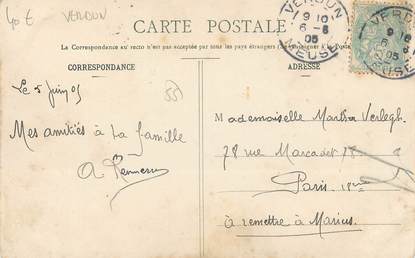 40 € VERDUN
CARTE POSTALE
La Correspondance au recto n'est pas acceptée par tous les pays étrangers
à la Poste
CORRESPONDANCE
ADRESSE
VERDUN
9 10
6 - 6
05
MEUSE
VERDUN
9 10
6
05
MEUSE
Le 5 juin 05
55
Mes amitiés à la famille
A
Mademoiselle Martha Verlegh
78 rue Marcadet 78
Paris 18me
à remettre à Marius.